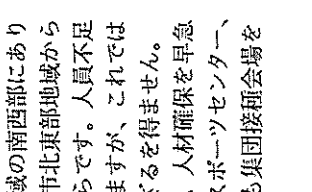 域の南西部にあり
市北東部地域から
らです。人員不足
ますが、これでは
ざるを得ません。
、人材確保を早急
スポーツセンター、
集団接種会場を